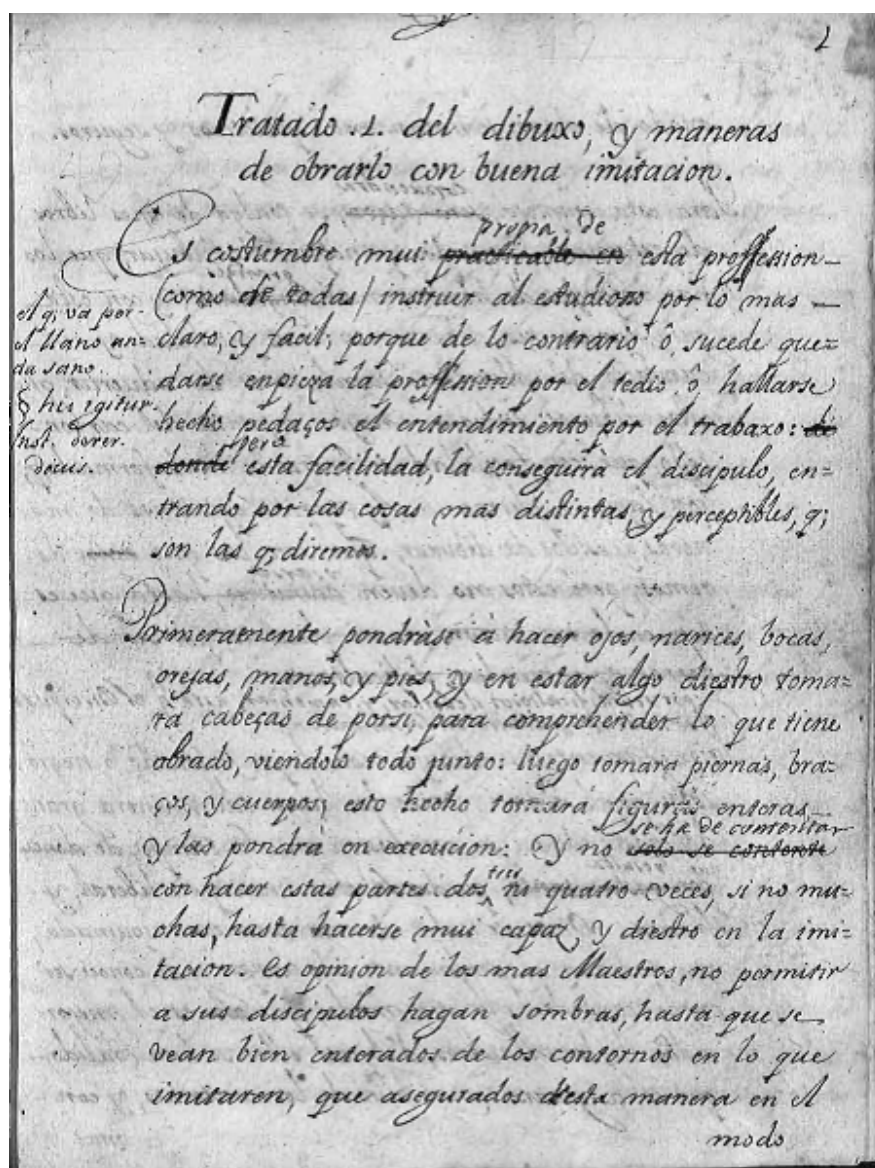 1
Tratado .1. del dibuxo, y maneras
de obrarlo con buena imitacion.
propia de
Es costumbre mui practicable en esta proffession
(como de todas) instruir al estudioso por lo mas
claro, y facil; porque de lo contrario ô sucede que=
darse enpieza la proffession por el tedio, ô hallarse
hecho pedaços el entendimiento por el trabaxo: de
pero
donde esta facilidad, la conseguirà el discipulo, en=
trando por las cosas mas distintas, y perceptibles, q;
son las q; diremos.
el q; va por
el llano an=
da sano.
§ his igitur.
Inst. de
Primeramente pondràse à hacer ojos, narices, bocas,
orejas, manos, y pies, y en estar algo diestro toma=
rà cabeças de porsi, para comprehender lo que tiene
obrado, viendolo todo junto: luego tomara piernas, bra=
ços, y cuerpos; esto hecho tomarà figuras enteras,
se ha de contentar
y las pondrà en execucion: Y no solo se contente
tres
con hacer estas partes dos, ni quatro veces, si no mu=
chas, hasta hacerse mui capaz, y diestro en la imi=
tacion. Es opinion de los mas Maestros, no permitir
a sus discipulos hagan sombras, hasta que se
vean bien enterados de los contornos en lo que
imitaren, que asegurados desta manera en el
modo